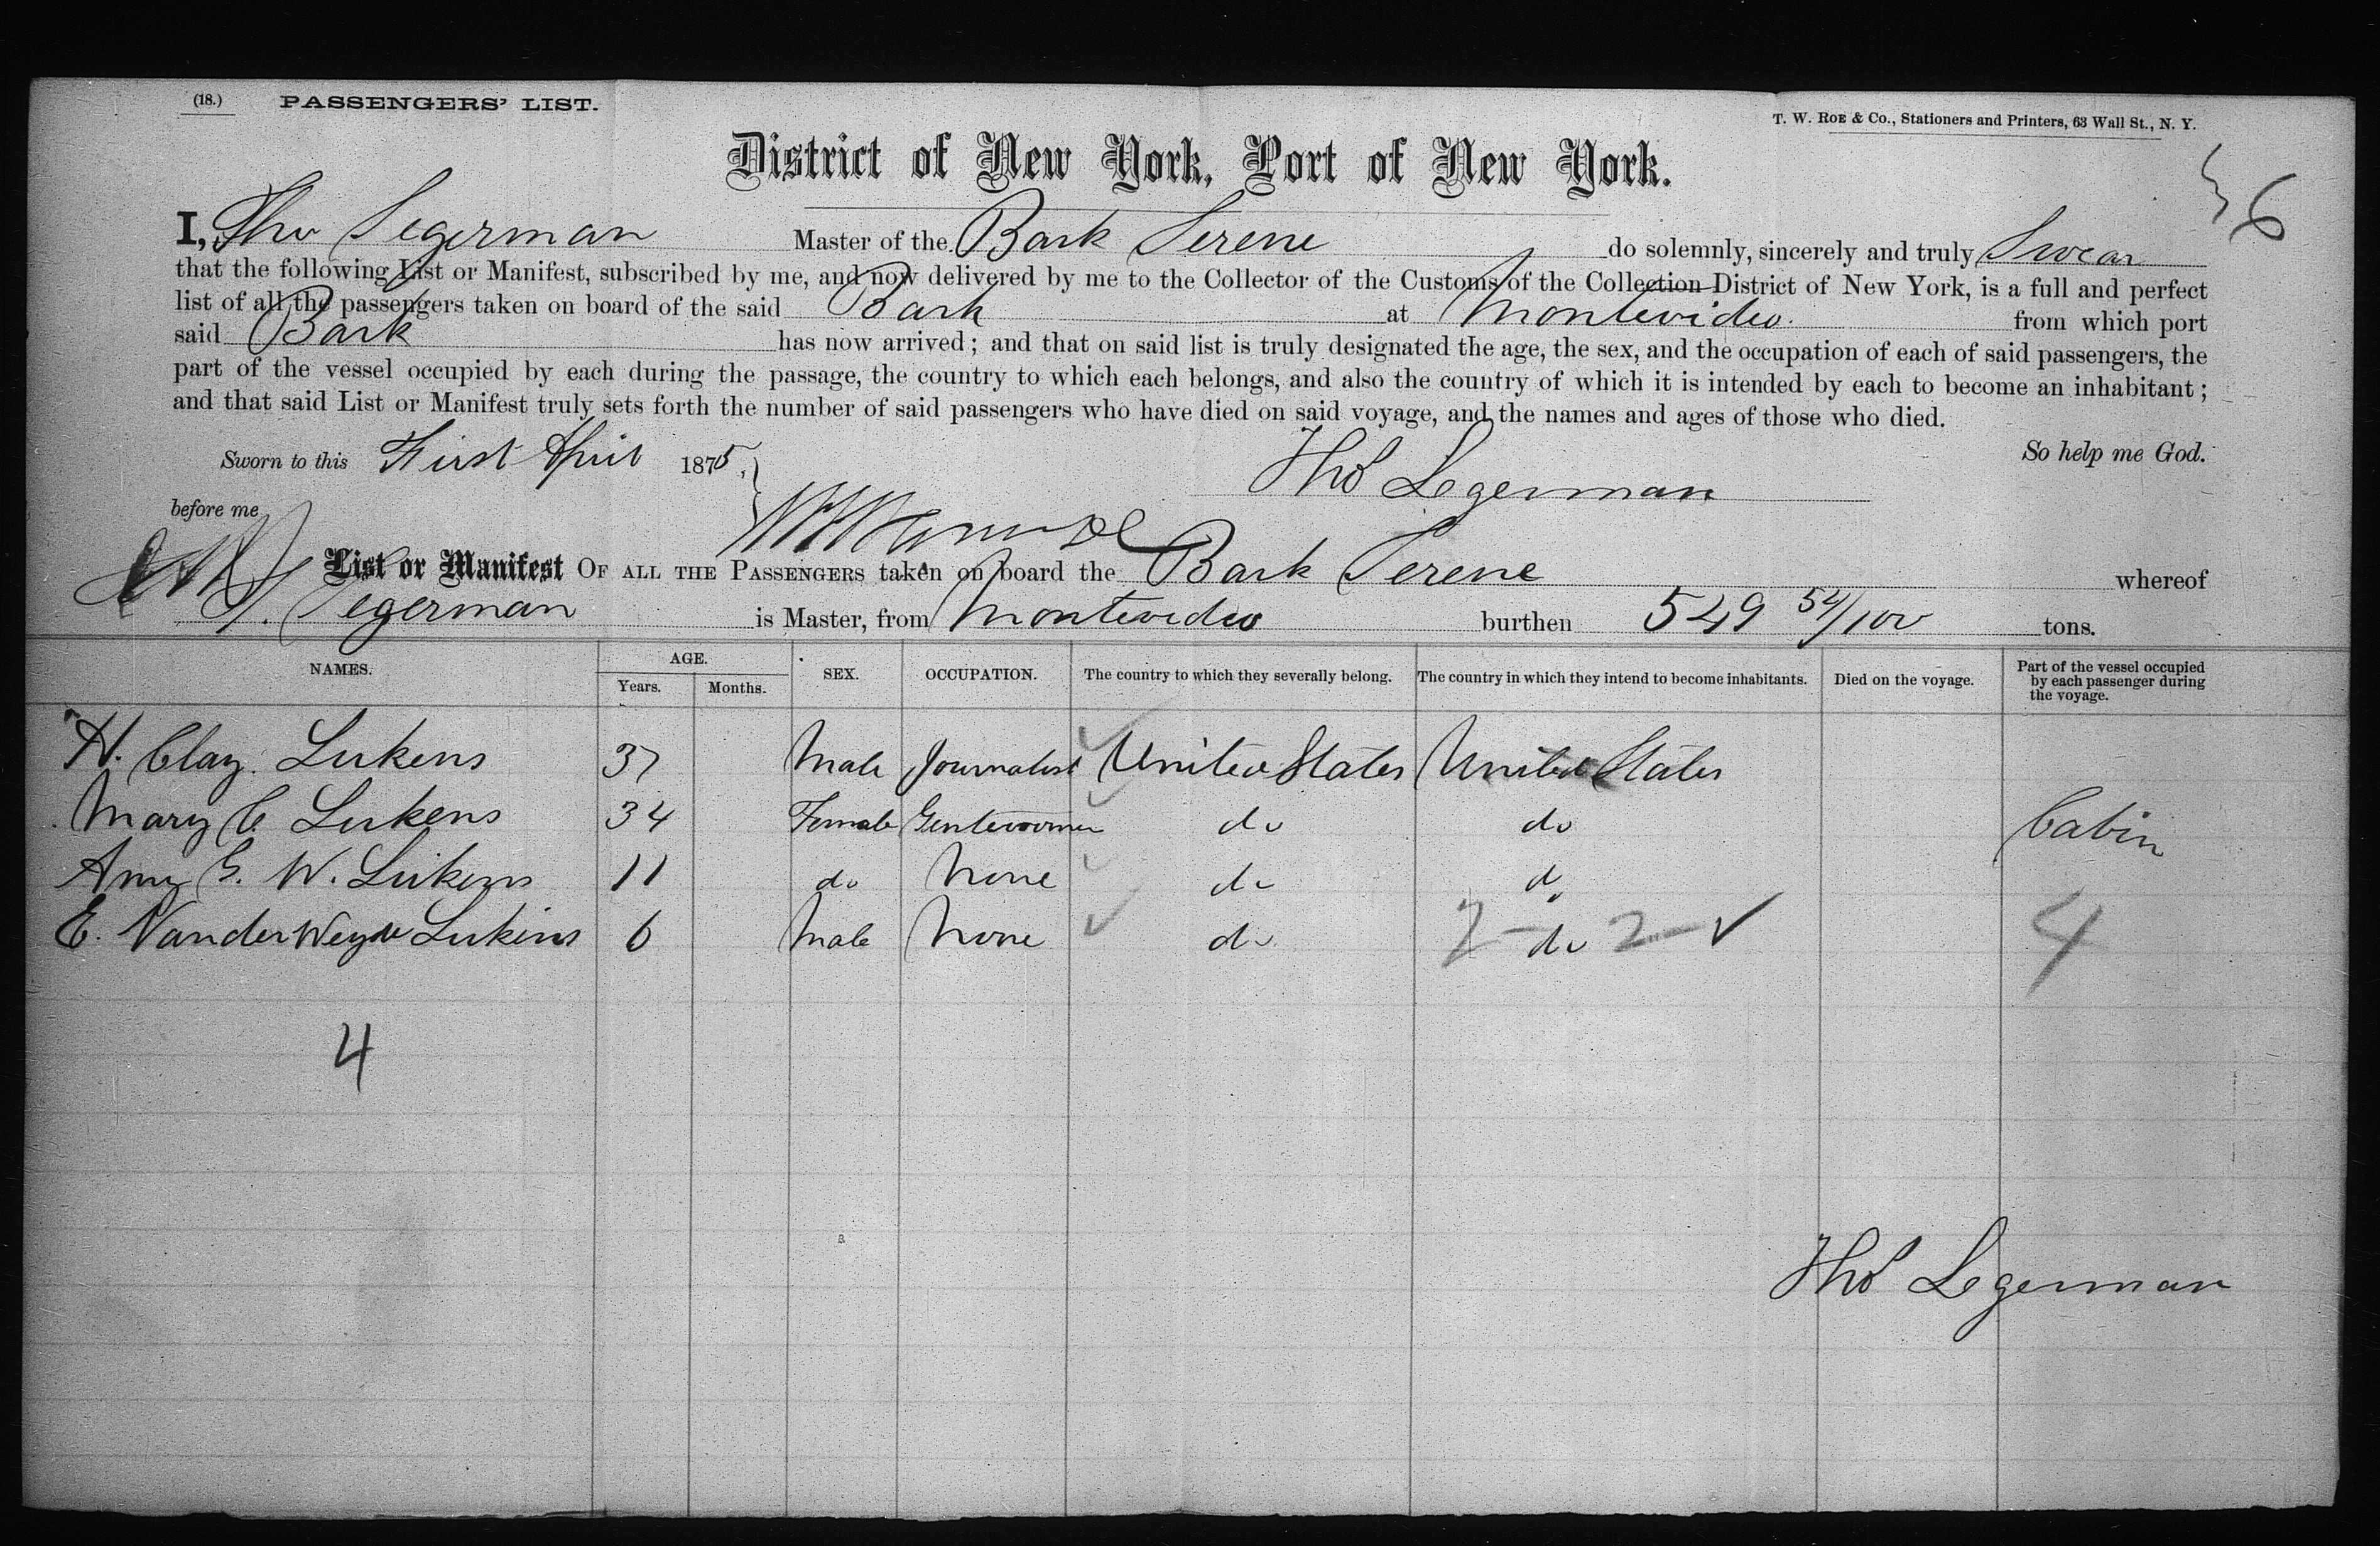 (18.) PASSENGERS' LIST.
T. W. ROE & Co., Stationers and Printers, 63 Wall St., N. Y.
36
District of New York, Port of New York.
I, Tho Segerman Master of the Bark Serene do solemnly, sincerely and truly Swear
that the following List or Manifest, subscribed by me, and now delivered by me to the Collector of the Customs of the Collection District of New York, is a full and perfect
list of all the passengers taken on board of the said Bark at Montevideo from which port
said Bark has now arrived; and that on said list is truly designated the age, the sex, and the occupation of each of said passengers, the
part of the vessel occupied by each during the passage, the country to which each belongs, and also the country of which it is intended by each to become an inhabitant;
and that said List or Manifest truly sets forth the number of said passengers who have died on said voyage, and the names and ages of those who died.
Sworn to this First April 1875, So help me God.
Tho Segerman
before me
List or Manifest OF ALL THE PASSENGERS taken on board the Bark Serene whereof
T. Segerman is Master, from Montevideo burthen 549 54/100 tons.
NAMES. AGE. Years. Months. SEX. OCCUPATION. The country to which they severally belong. The country in which they intend to become inhabitants. Died on the voyage. Part of the vessel occupied by each passenger during the voyage.
H. Clay Lukens 37 Male Journalist United States United States
Mary C. Lukens 34 Female Gentlewoman do do Cabin
Amy G. W. Lukens 11 do None do do
E. VanderWeyde Lukens 6 Male None do 2 do 2 ✓ 4
4
Tho Segerman